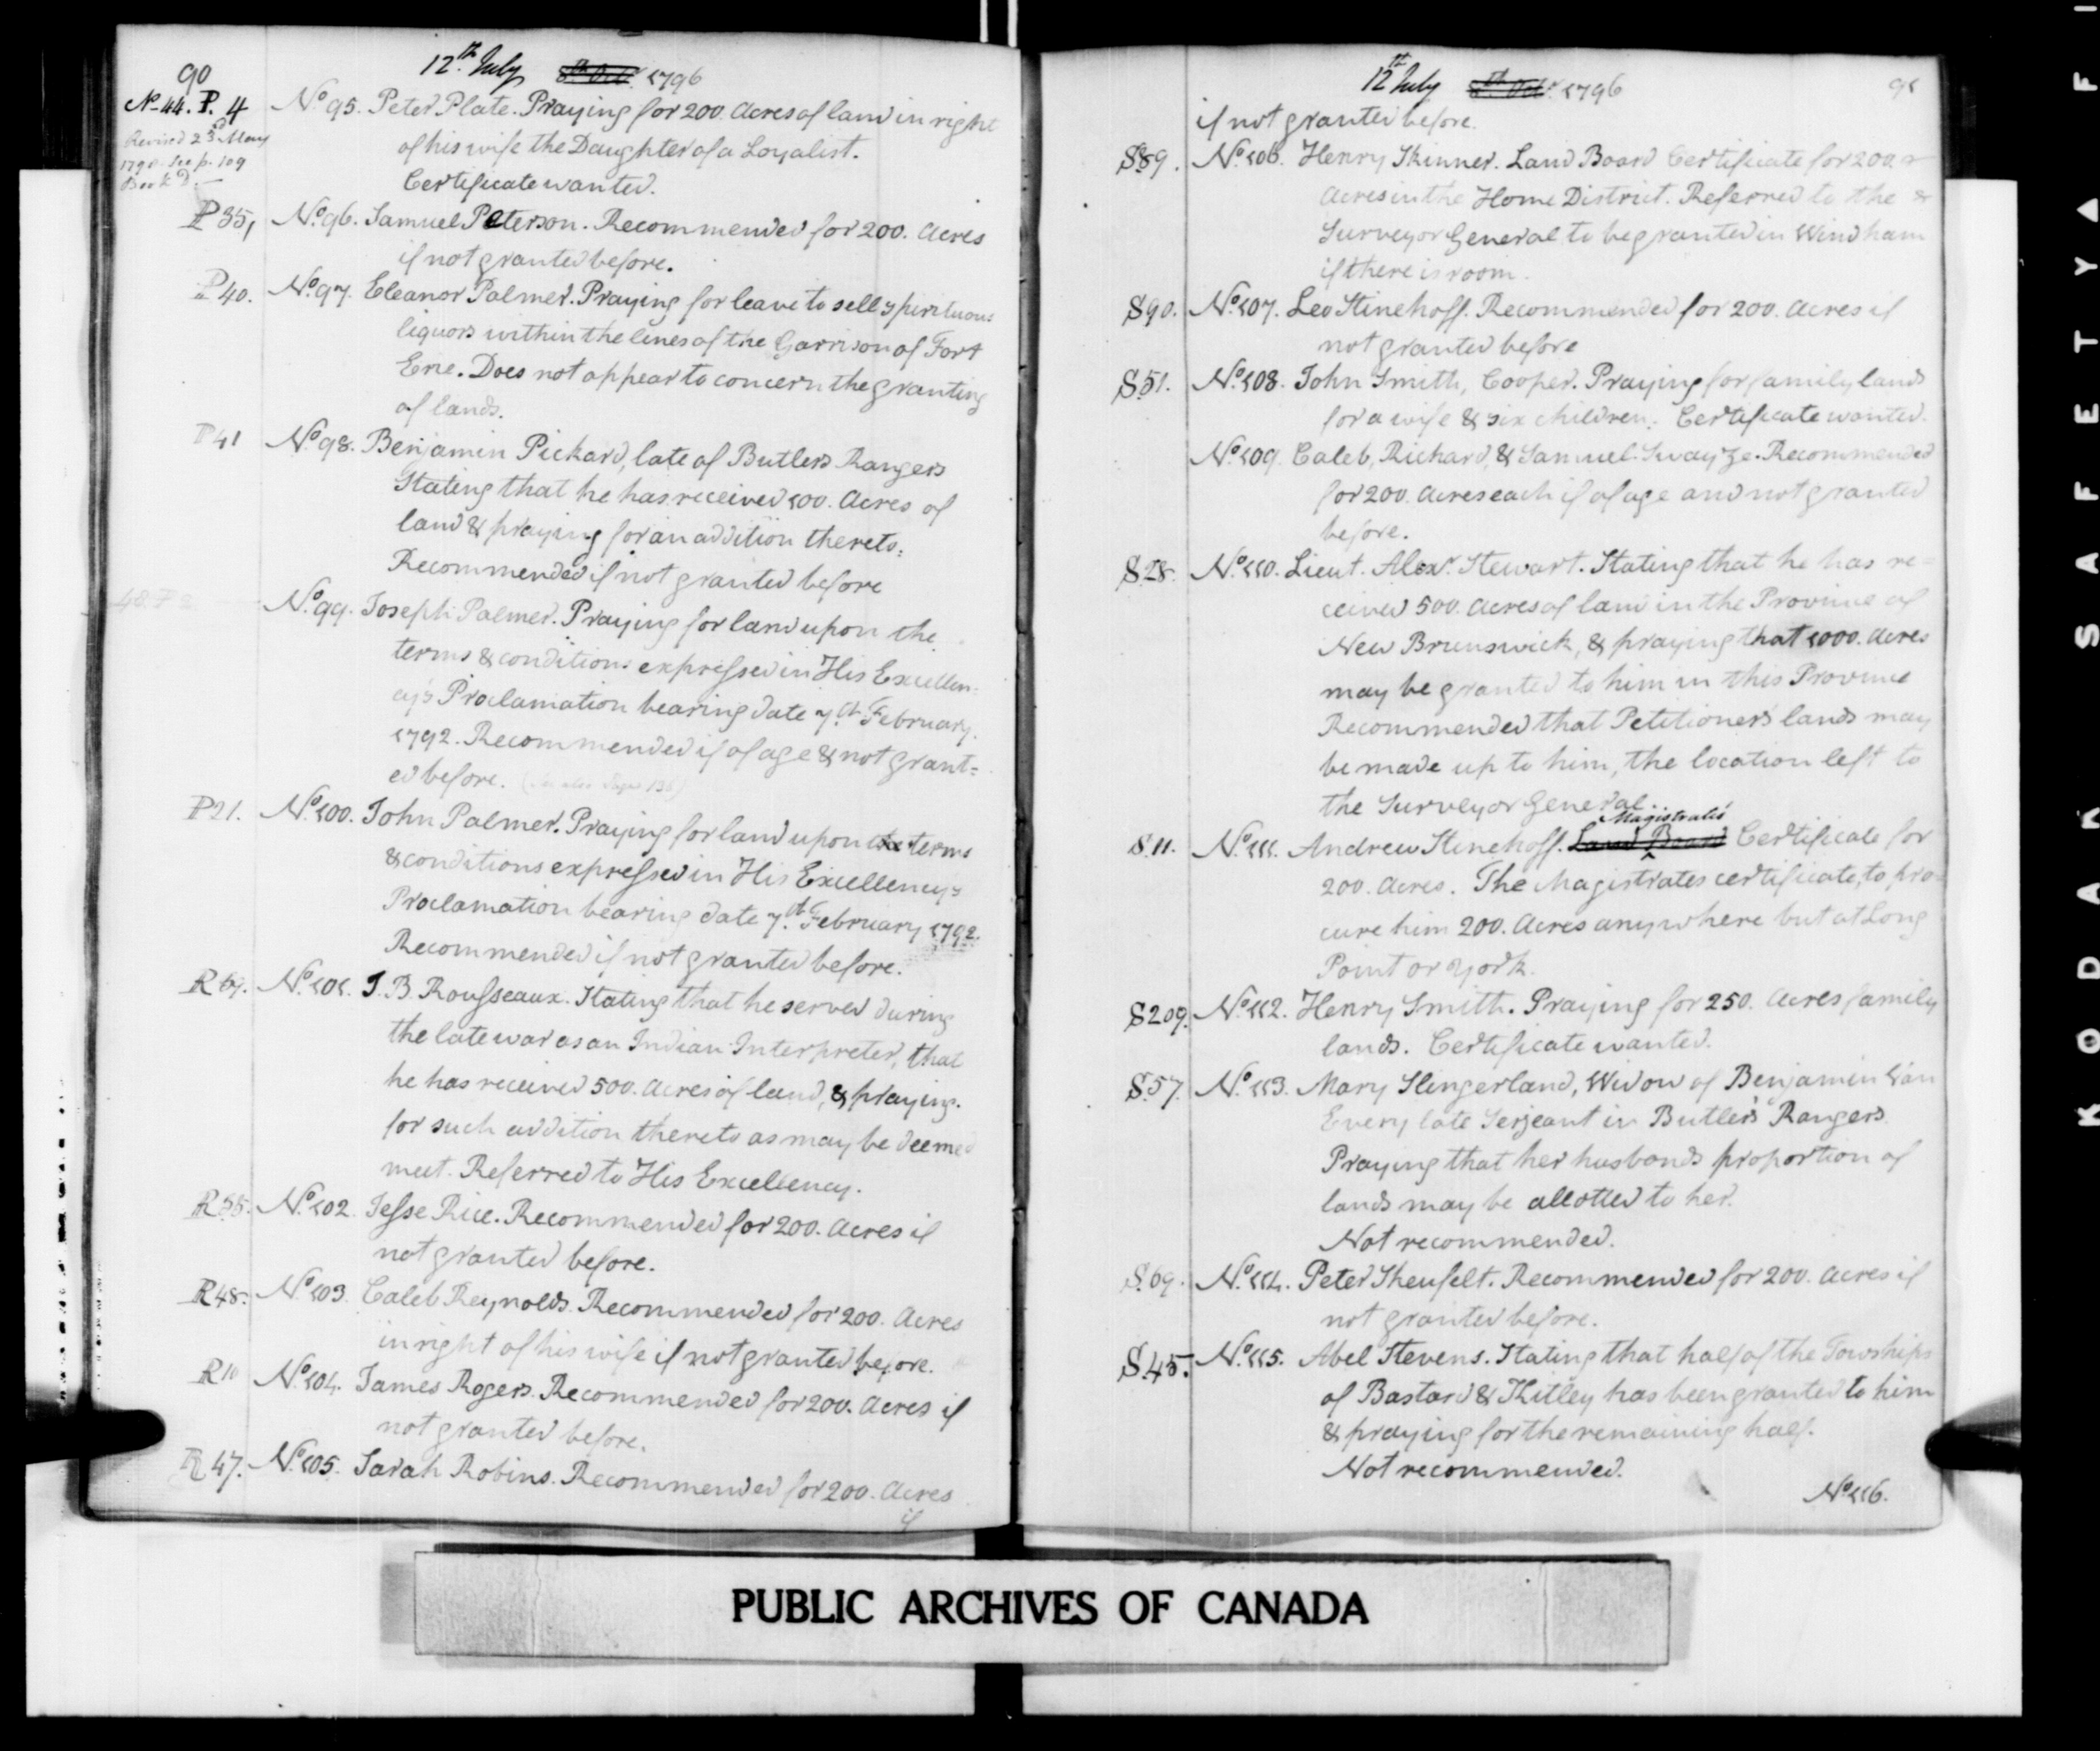 90
12th July 8th Oct. 1796
No 44. P. 4
Revised 23d May
1798. See p. 109
Book D.
No 95. Peter Plate. Praying for 200. Acres of land in right
of his wife the Daughter of a Loyalist.
Certificate wanted.
P 35, No 96. Samuel Peterson. Recommended for 200. Acres
if not granted before.
P 40. No 97. Eleanor Palmer. Praying for leave to sell spirituous
liquors within the lines of the Garrison of Fort
Erie. Does not appear to concern the granting
of lands.
P 41 No 98. Benjamin Pickard, late of Butlers Rangers
Stating that he has received 100. Acres of
land & praying for an addition thereto.
Recommended if not granted before
No 99. Joseph Palmer. Praying for land upon the
terms & conditions expressed in His Excellen=
cy's Proclamation bearing date 7th February
1792. Recommended if of age & not grant=
ed before.
P 21. No 100. John Palmer. Praying for land upon the terms
& conditions expressed in His Excellency's
Proclamation bearing date 7th February 1792.
Recommended if not granted before.
R 67. No 101. J. B. Rousseaux. Stating that he served during
the late war as an Indian Interpreter, that
he has received 500. Acres of land, & praying
for such addition thereto as may be deemed
meet. Referred to His Excellency.
R 55. No 102 Jesse Rice. Recommended for 200. Acres if
not granted before.
R 48. No 103 Caleb Reynolds. Recommended for 200. Acres
in right of his wife if not granted before.
R 10 No 104. James Rogers. Recommended for 200. Acres if
not granted before.
R 47. No 105. Sarah Robins. Recommended for 200. Acres
if
12th July 8th Oct. 1796
91
if not granted before.
S 89. No 106. Henry Skinner. Land Board Certificate for 200
Acres in the Home District. Referred to the
Surveyor General to be granted in Windham
if there is room.
S 90. No 107. Leo Stinehoff. Recommended for 200. Acres if
not granted before
S 51. No 108. John Smith, Cooper. Praying for family lands
for a wife & six children. Certificate wanted.
No 109. Caleb, Richard, & Samuel Swayze. Recommended
for 200. Acres each if of age and not granted
before.
S 28. No 110. Lieut. Alexr. Stewart. Stating that he has re=
ceived 500. Acres of land in the Province of
New Brunswick, & praying that 1000. Acres
may be granted to him in this Province
Recommended that Petitioner's lands may
be made up to him, the location left to
the Surveyor General.
Magistrates
S. 11. No 111. Andrew Stinehoff. Land Board Certificate for
200. Acres. The Magistrates certificate, to pro=
cure him 200. Acres anywhere but at Long
Point or York.
S 209. No 112. Henry Smith. Praying for 250. Acres family
lands. Certificate wanted.
S. 57. No 113. Mary Slingerland, Widow of Benjamin Van
Every late Serjeant in Butler's Rangers
Praying that her husbands proportion of
lands may be allotted to her.
Not recommended.
S. 69. No 114. Peter Sheufelt. Recommended for 200. Acres if
not granted before.
S. 45. No 115. Abel Stevens. Stating that half of the Townships
of Bastard & Kitley has been granted to him
& praying for the remaining half.
Not recommended.
No 116.
PUBLIC ARCHIVES OF CANADA
KODAK SAFETY